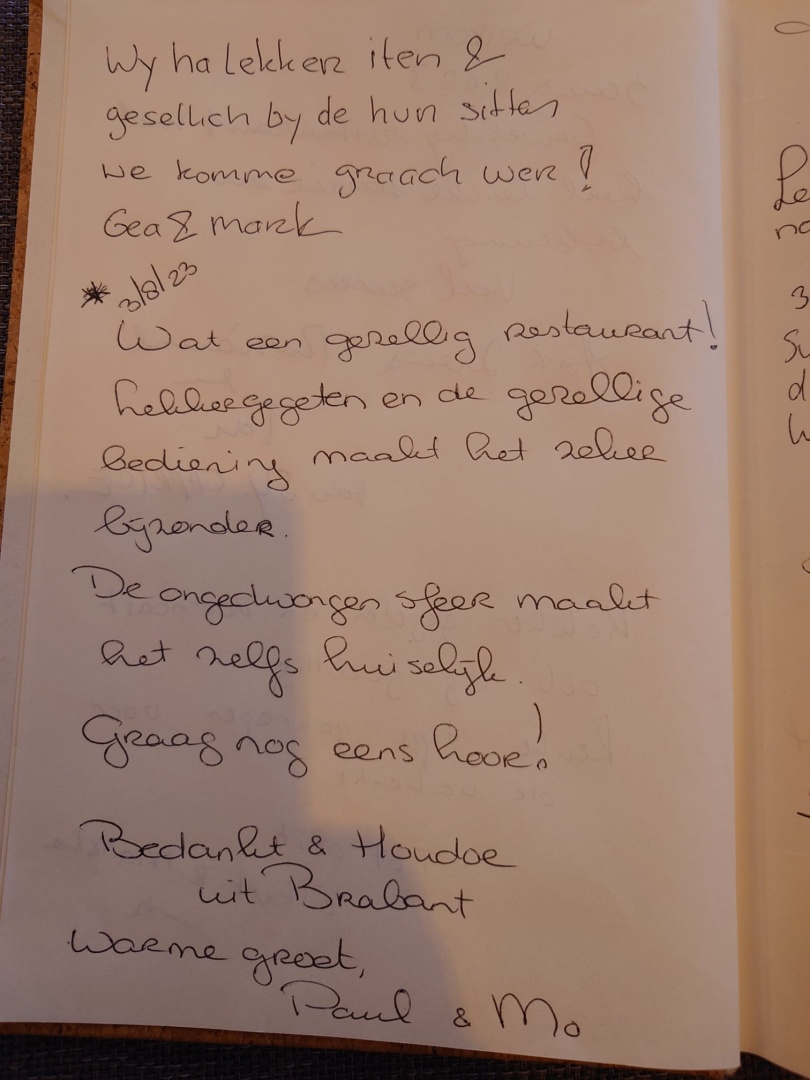 Wy ha lekker iten &
gesellich by de hun sitten
we komme graach wer!
Gea & Mark
* 3/8/23
Wat een gezellig restaurant!
Lekker gegeten en de gezellige
bediening maakt het zeker
bijzonder.
De ongedwongen sfeer maakt
het zelfs huiselijk.
Graag nog eens hoor!
Bedankt & Houdoe
uit Brabant
Warme groet,
Paul & Mo